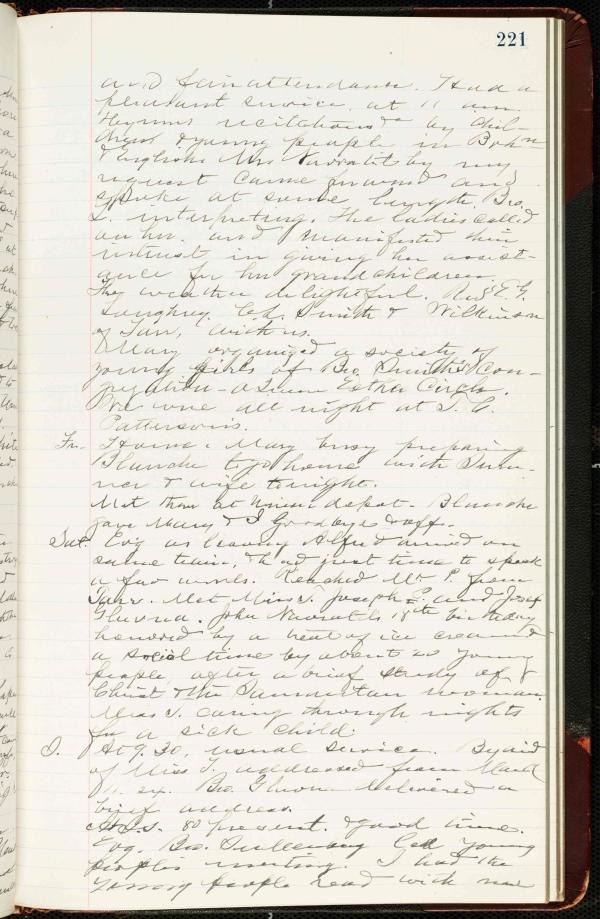 221
and fair attendance. Had a
pleasant service at 11 a.m.
Hymns recitations &c by chil-
dren & young people in Bohn
& English. Mrs Navratils by my
request came forward and
spoke at some length, Bro.
L. interpreting. The ladies called
on her and manifested their
interest in giving her assist-
ance for her grandchildren.
The weather delightful. Revs E. G.
Ed. Smith & Wilkinson
of Tarr, with us.
Mary organized a society of
young girls of Bro. Smith's Con-
gregation - a Queen Esther Circle.
We were all night at S. C.
Pattersons.
Fr. Home. Mary busy preparing
Blanche to go home with Sum-
ner & wife tonight.
Met them at Union depot. Blanche
gave Mary & I Goodbyes & off.
Sat. Evg as leaving Alfred arrived on
same train, & had just time to speak
a few words. Reached Mt. P. from
Tarr. Met Miss S. Joseph P. and Josef
John Navratils 18th birthday
honored by a treat of ice cream &
a social time by about 20 young
people, after a brief study of
Christ & the Samaritan woman.
Miss S. caring through nights
for a sick child.
S. At 9.30, usual service. By aid
of Miss S. addressed from Mark
Bro. delivered a
brief address.
At S.S. 80 present. & good time.
Evg. Bro. led young
people's meeting. I had the
young people read with me